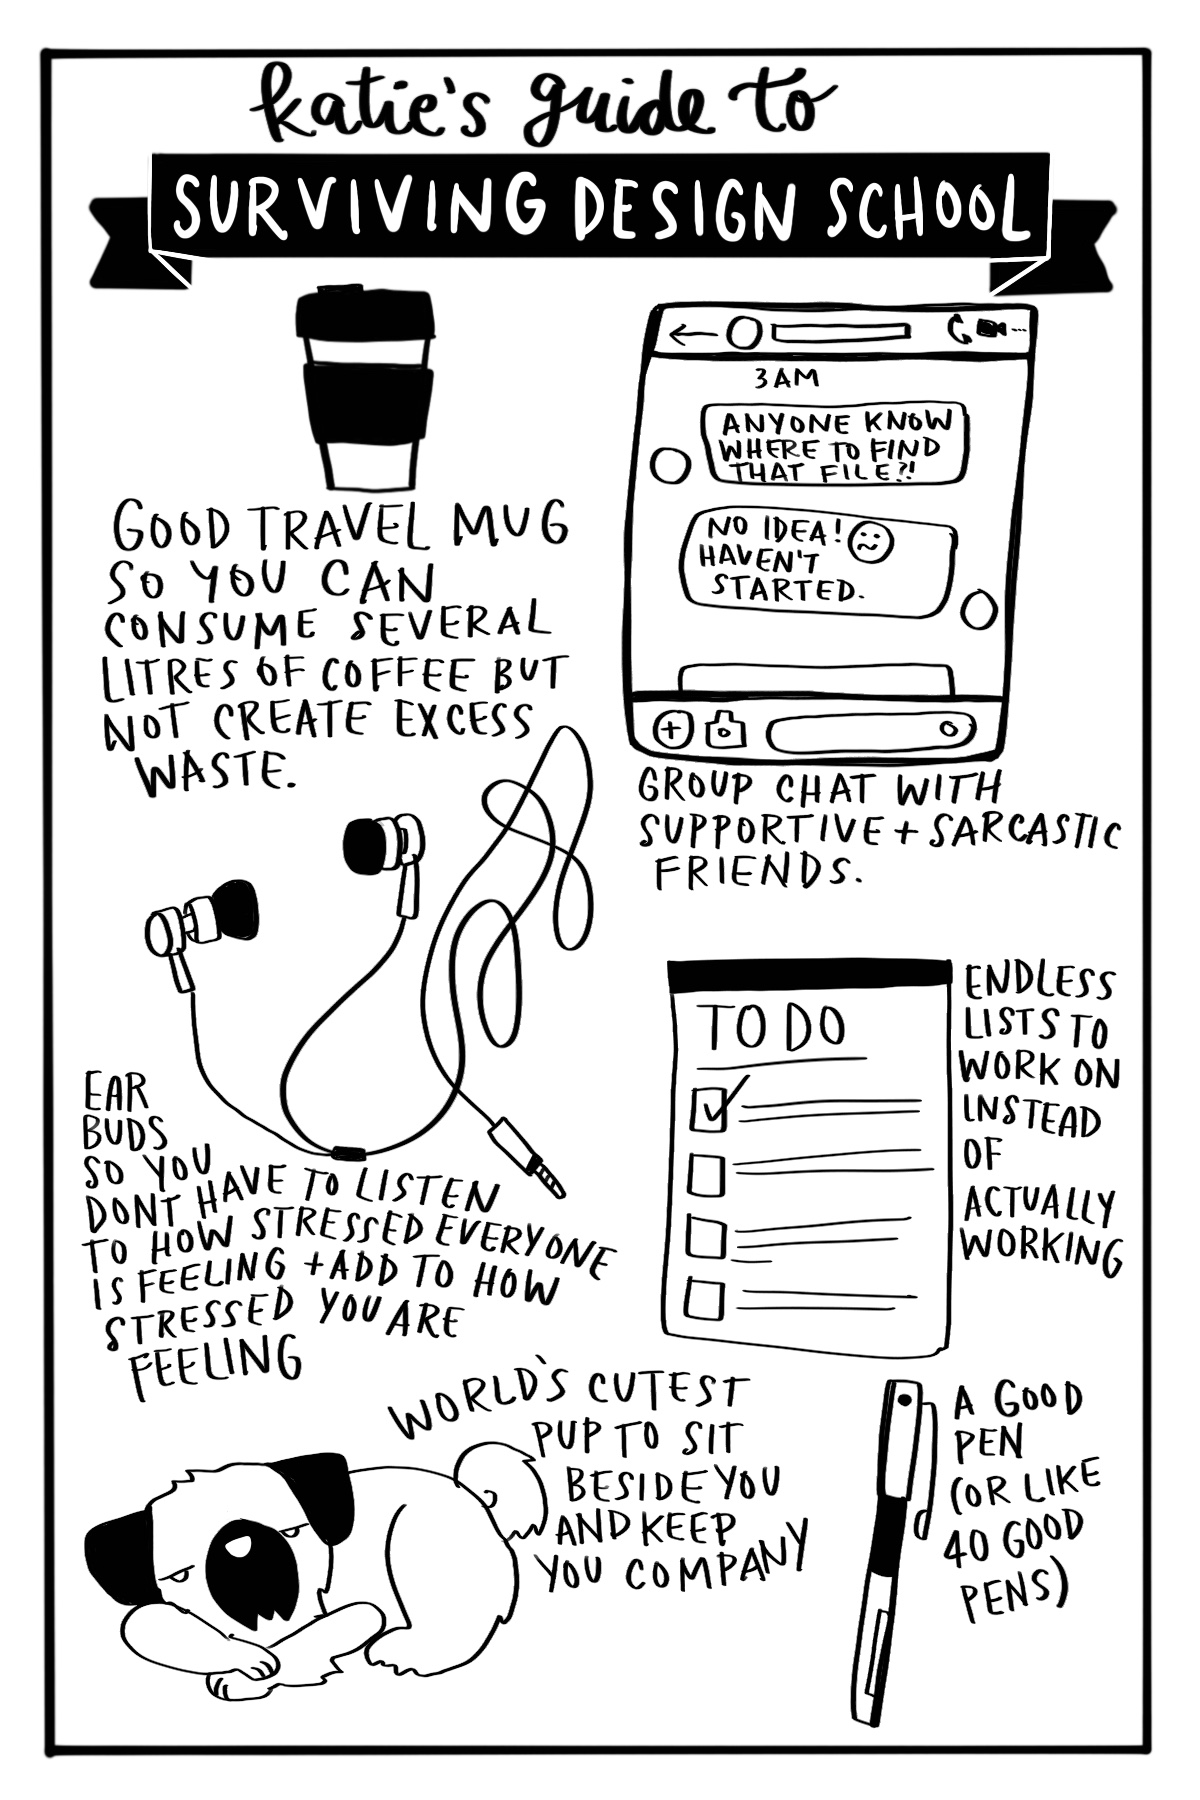 katie's guide to
SURVIVING DESIGN SCHOOL
GOOD TRAVEL MUG
SO YOU CAN
CONSUME SEVERAL
LITRES OF COFFEE BUT
NOT CREATE EXCESS
WASTE.
3AM
ANYONE KNOW
WHERE TO FIND
THAT FILE?!
NO IDEA!
HAVEN'T
STARTED.
GROUP CHAT WITH
SUPPORTIVE + SARCASTIC
FRIENDS.
EAR
BUDS
SO YOU
DONT HAVE TO LISTEN
TO HOW STRESSED EVERYONE
IS FEELING + ADD TO HOW
STRESSED YOU ARE
FEELING
TO DO
ENDLESS
LISTS TO
WORK ON
INSTEAD
OF
ACTUALLY
WORKING
WORLD'S CUTEST
PUP TO SIT
BESIDE YOU
AND KEEP
YOU COMPANY
A GOOD
PEN
(OR LIKE
40 GOOD
PENS)